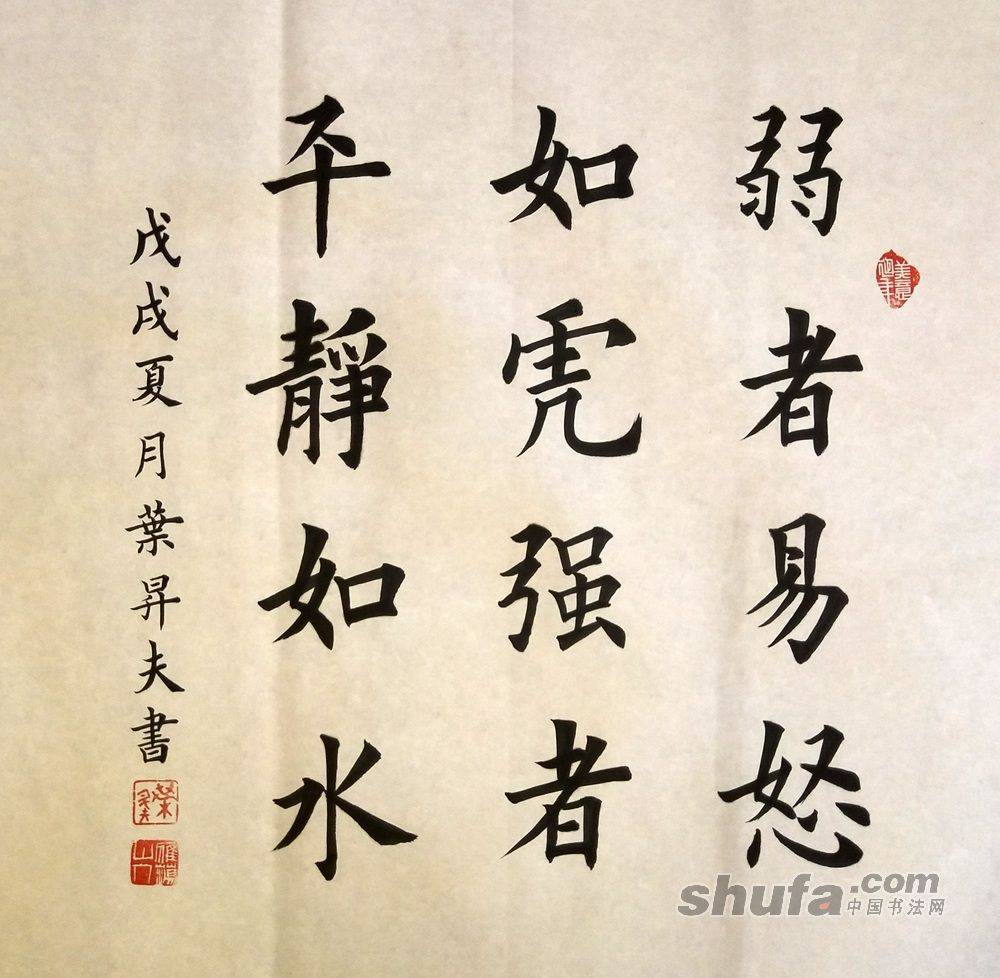 弱者易怒
如虎强者
平靜如水
戊戌夏月葉昇夫書
shufa.com
中国书法网